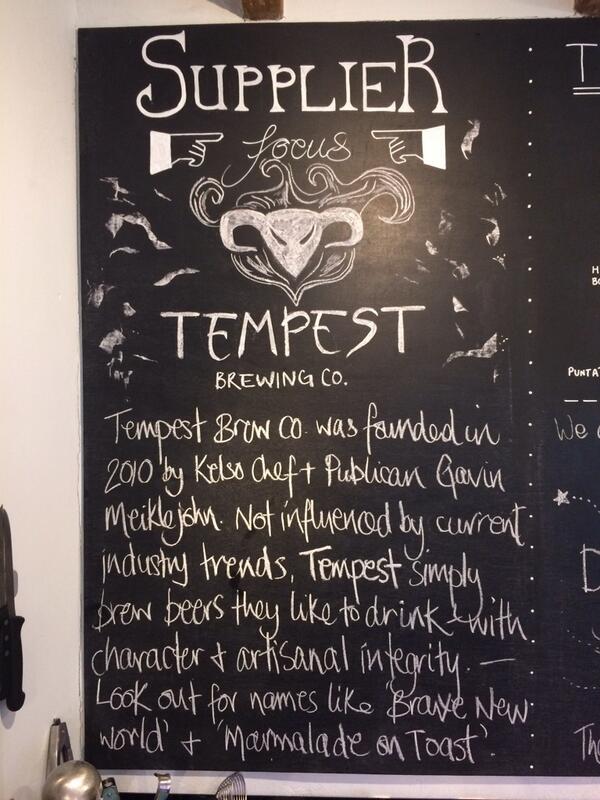 SUPPLIER
focus
TEMPEST
BREWING CO.
Tempest Brew Co. was founded in
2010 by Kelso Chef + Publican Gavin
Meiklejohn. Not influenced by current
industry trends, Tempest simply
brew beers they like to drink + with
character + artisanal integrity. —
Look out for names like 'Brave New
World' + 'Marmalade on Toast'.
T
H
BO
PUNTA
We
D
Th